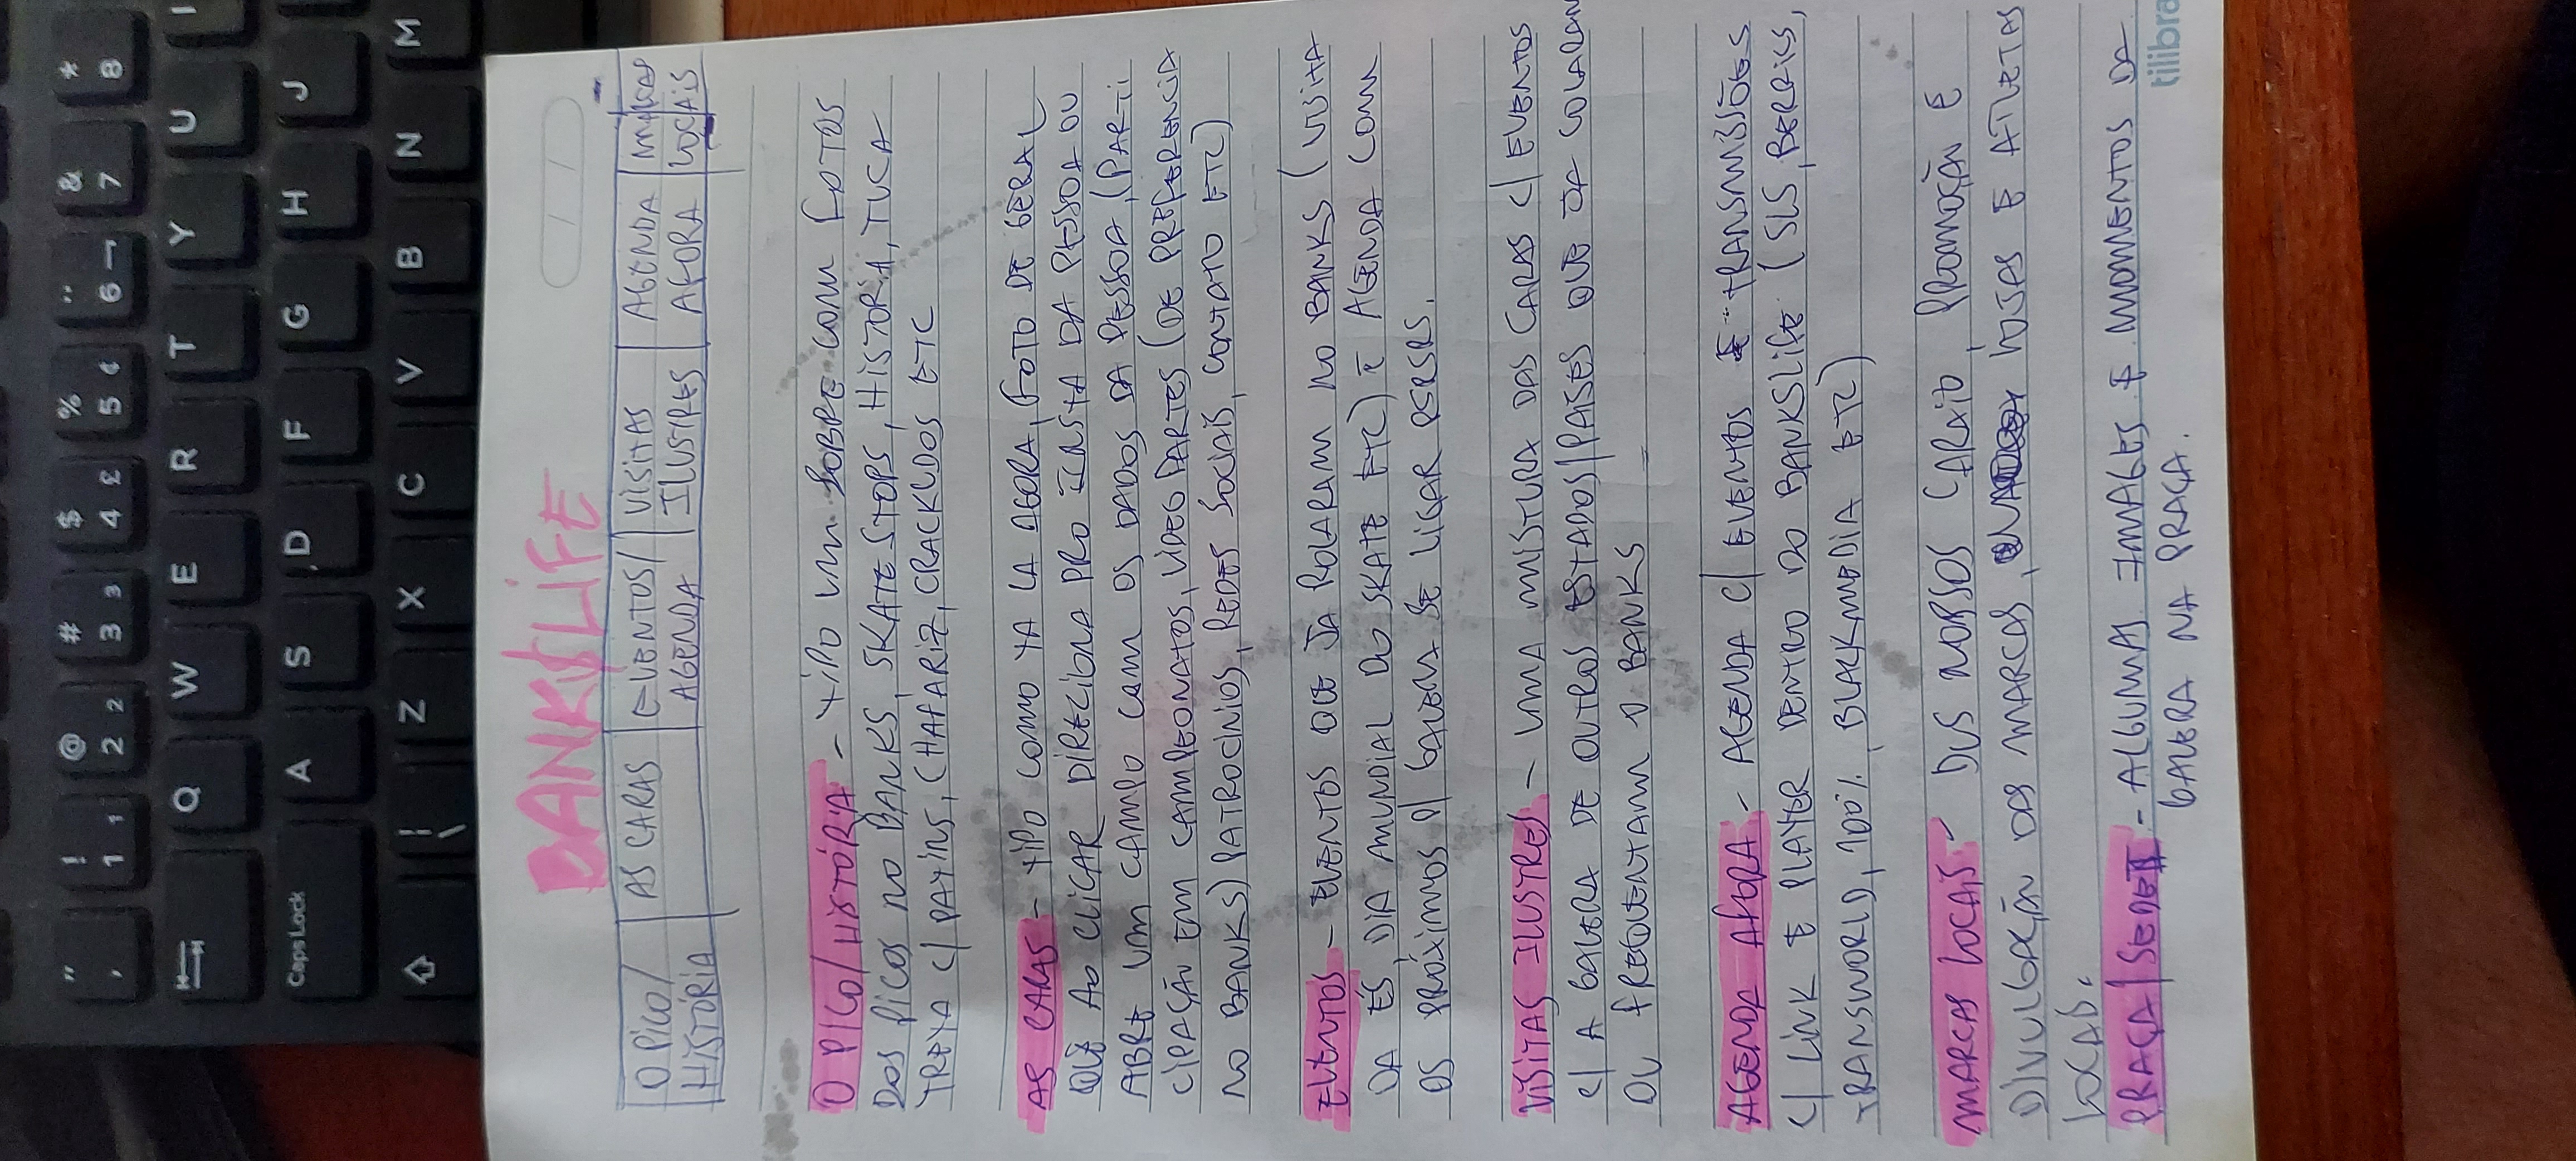 " ! @ # $ % ¨ & *
' 1 1 2 2 3 3 4 £ 5 ¢ 6 ¬ 7 8
Q W E R T Y U I
Caps Lock A S D F G H J
| \ Z X C V B N M
BANK$LIFE
O PICO/ HISTÓRIA
AS CARAS
EVENTOS/ AGENDA
VISITAS ILUSTRES
AGENDA AFORA
MARCAS LOCAIS
O PICO/HISTÓRIA - TIPO UM SOBRE COM FOTOS
DOS PICOS NO BANKS, SKATE STOPS, HISTORIA, TUCA
TREYA C/ PATINS, CHAFARIZ, CRACKUDOS ETC
AS CARAS - TIPO COMO TA LA AGORA, FOTO DE GERAL
QUE AO CLICAR DIRECIONA PRO INSTA DA PESSOA OU
ABRE UM CAMPO COM OS DADOS DA PESSOA, (PARTI
CIPAÇÃO EM CAMPEONATOS, VIDEO PARTES (DE PREFERENCIA
NO BANKS) PATROCINIOS, REDES SOCIAIS, CONTATO ETC)
EVENTOS - EVENTOS QUE JA ROLARAM NO BANKS (VISITA
DA ÉS, DIA MUNDIAL DO SKATE ETC) E AGENDA COM
OS PRÓXIMOS P/ GALERA SE LIGAR RSRSRS.
VISITAS ILUSTRES - UMA MISTURA DAS CARAS C/ EVENTOS
C/ A GALERA DE OUTROS ESTADOS/PAISES QUE JA COLARAM
OU FREQUENTAM O BANKS
AGENDA AFORA - AGENDA C/ EVENTOS E TRANSMISSÕES
C/ LINK E PLAYER DENTRO DO BANKSLIFE (SLS, BERRICS,
TRANSWORLD, 100%, BLACKMEDIA ETC)
MARCAS LOCAIS - DUS NOSSOS CARAIO, PROMOÇÃO E
DIVULGAÇÃO DAS MARCAS, LOJAS E ATLETAS
LOCAIS.
PRAÇA/SEDE - ALGUMAS IMAGES E MOMENTOS DA
GALERA NA PRAÇA.
tilibra